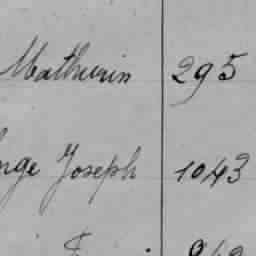 Mathurin 295
nge Joseph 1043